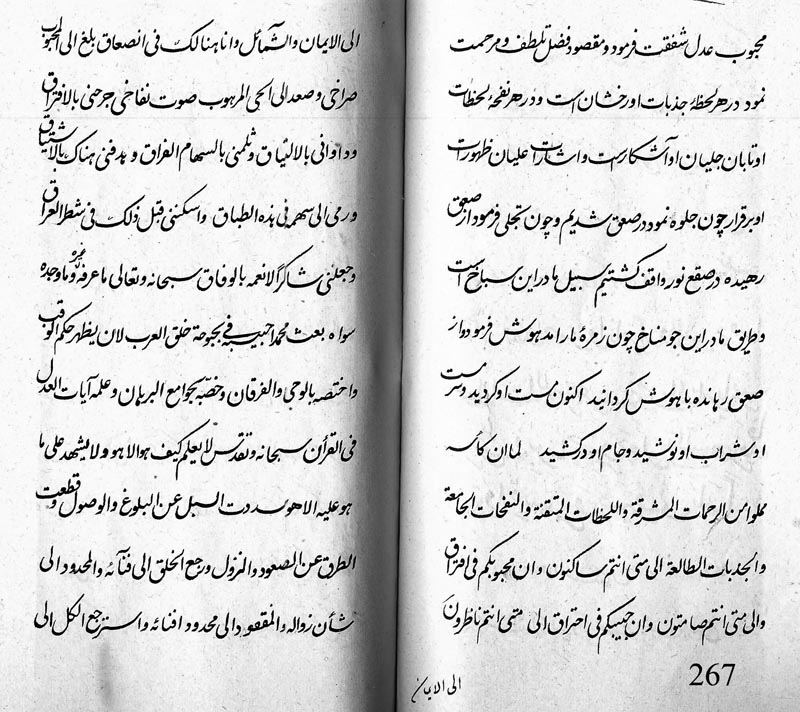 محبوب عدل شفقت فرمود و مقصود فضل تلطف و مرحمت
نمود در هر لحظهٔ جذبات اورخشان است و در هر نفحهٔ لحظات
او تابان جلیان او آشکار است و اشارات علیان ظهورات
او برقرار چون جلوه نمود در صعق شدیم و چون تجلی فرمود از صعق
رهیده در صقع نور واقف گشتیم سبیل ما در این سباخ است
و طریق ما در این جو مناخ چون زمرهٔ ما را مدهوش فرمود و از
صعق رهانده با هوش گردانید اکنون مست او گردید و سرمست
او شراب او نوشید و جام او در کشید لما ان کأسه
مملوا من الرحمات المشرقة و اللحظات المتقنة و النفحات الجامعة
و الجذبات الطالعة الی متی انتم ساکنون و ان محبوبکم فی افتراق
و الی متی انتم صامتون و ان حبیبکم فی احتراق الی متی انتم ناظرون
الی الایمان
267
الی الایمان و الشمائل و انا هنالک فی انصعاق بلغ الی المحبوب
صراخی و صعد الی الحی المرهوب صوت نفاخی جرحنی بالافتراق
و داوانی بالالتیاق و ثلمنی بالسهام الفراق و یدفنی هناک بالاشتیاق
و رمی الی سهمه فی هذه الطباق و اسکننی قبل ذلک فی شطر العراق
و جعلنی شاکرا لانعمه بالوفاق سبحانه و تعالی ما عرفه غیره و ما وجده
سواه بعث محمدا حبیبه فی بحبوحة خلق العرب لان یظهر حکم الوقب
و اختصه بالوحی و الفرقان و خصّه بجوامع البرهان و علمه آیات العدل
فی القرآن سبحانه و تقدس لا یعلم کیف هو الا هو و لا یشهد علی ما
هو علیه الا هو سددت السبل عن البلوغ و الوصول و قطعت
الطرق عن الصعود و النزول و رجع الخلق الی فنائه و المحدود الی
شأن زواله و المفقود الی محدود افنائه و استرجع الکل الی